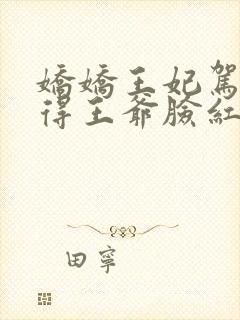 嬌嬌王妃駕
得王爺臉紅
田寧